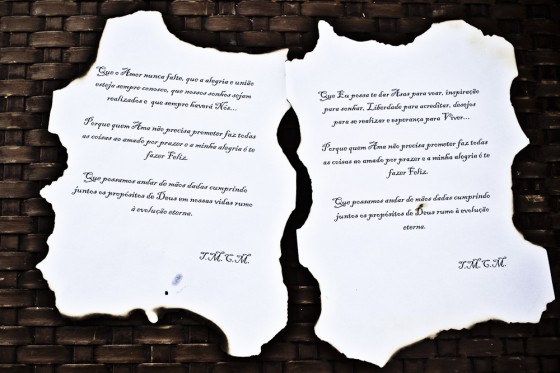 Que o Amor nunca falte, que a alegria e união
esteja sempre conosco, que nossos sonhos sejam
realizados e que sempre haverá Nós...
Porque quem Ama não precisa prometer faz todas
as coisas ao amado por prazer e a minha alegria é te
fazer Feliz.
Que possamos andar de mãos dadas cumprindo
juntos os propósitos de Deus em nossas vidas rumo
à evolução eterna.
T.M.C.M.
Que Eu possa te dar Asas para voar, inspiração
para sonhar, Liberdade para acreditar, desejos
para se realizar e esperança para Viver...
Porque quem Ama não precisa prometer faz todas
as coisas ao amado por prazer e a minha alegria é te
fazer Feliz.
Que possamos andar de mãos dadas cumprindo
juntos os propósitos de Deus rumo à evolução
eterna.
T.M.C.M.